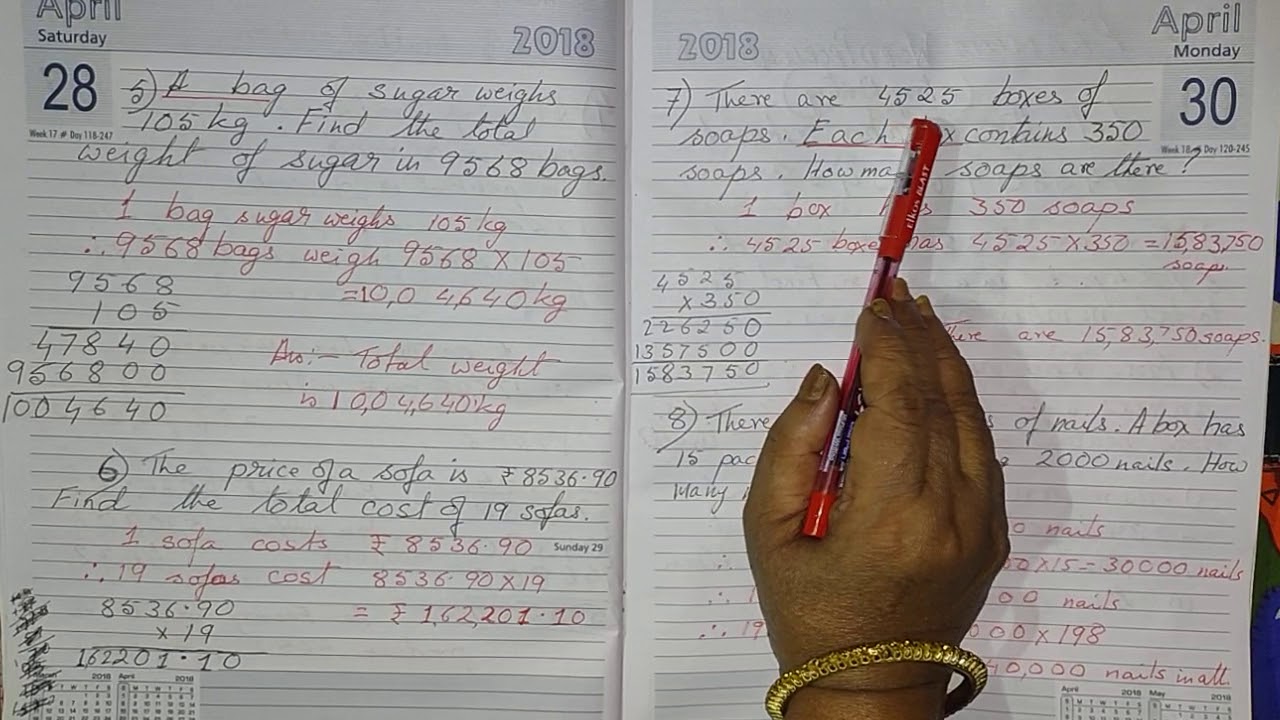 April
Saturday
2018
28
Week 17 # Day 118-247
5) A bag of sugar weighs
105 kg. Find the total
weight of sugar in 9568 bags.
1 bag sugar weighs 105 kg
∴ 9568 bags weigh 9568 × 105
= 10,04,640 kg
9568
105
47840
956800
1004640
Ans:- Total weight
is 10,04,640 kg
6) The price of a sofa is ₹ 8536.90
Find the total cost of 19 sofas.
1 sofa costs ₹ 8536.90
Sunday 29
∴ 19 sofas cost 8536.90 × 19
= ₹ 1,62,201.10
8536.90
× 19
162201.10
April
Monday
2018
30
Day 120-245
7) There are 4525 boxes of
soaps. Each contains 350
soaps. How soaps are there?
1 box 350 soaps
∴ 4525 4525 × 350 = 15,83,750
soaps
4525
× 350
226250
1357500
1583750
There are 15,83,750 soaps.
8) There of nails. A box has
15 2000 nails. How
Many
nails
× 15 = 30000 nails
∴ nails
∴ × 198
40,000 nails in all